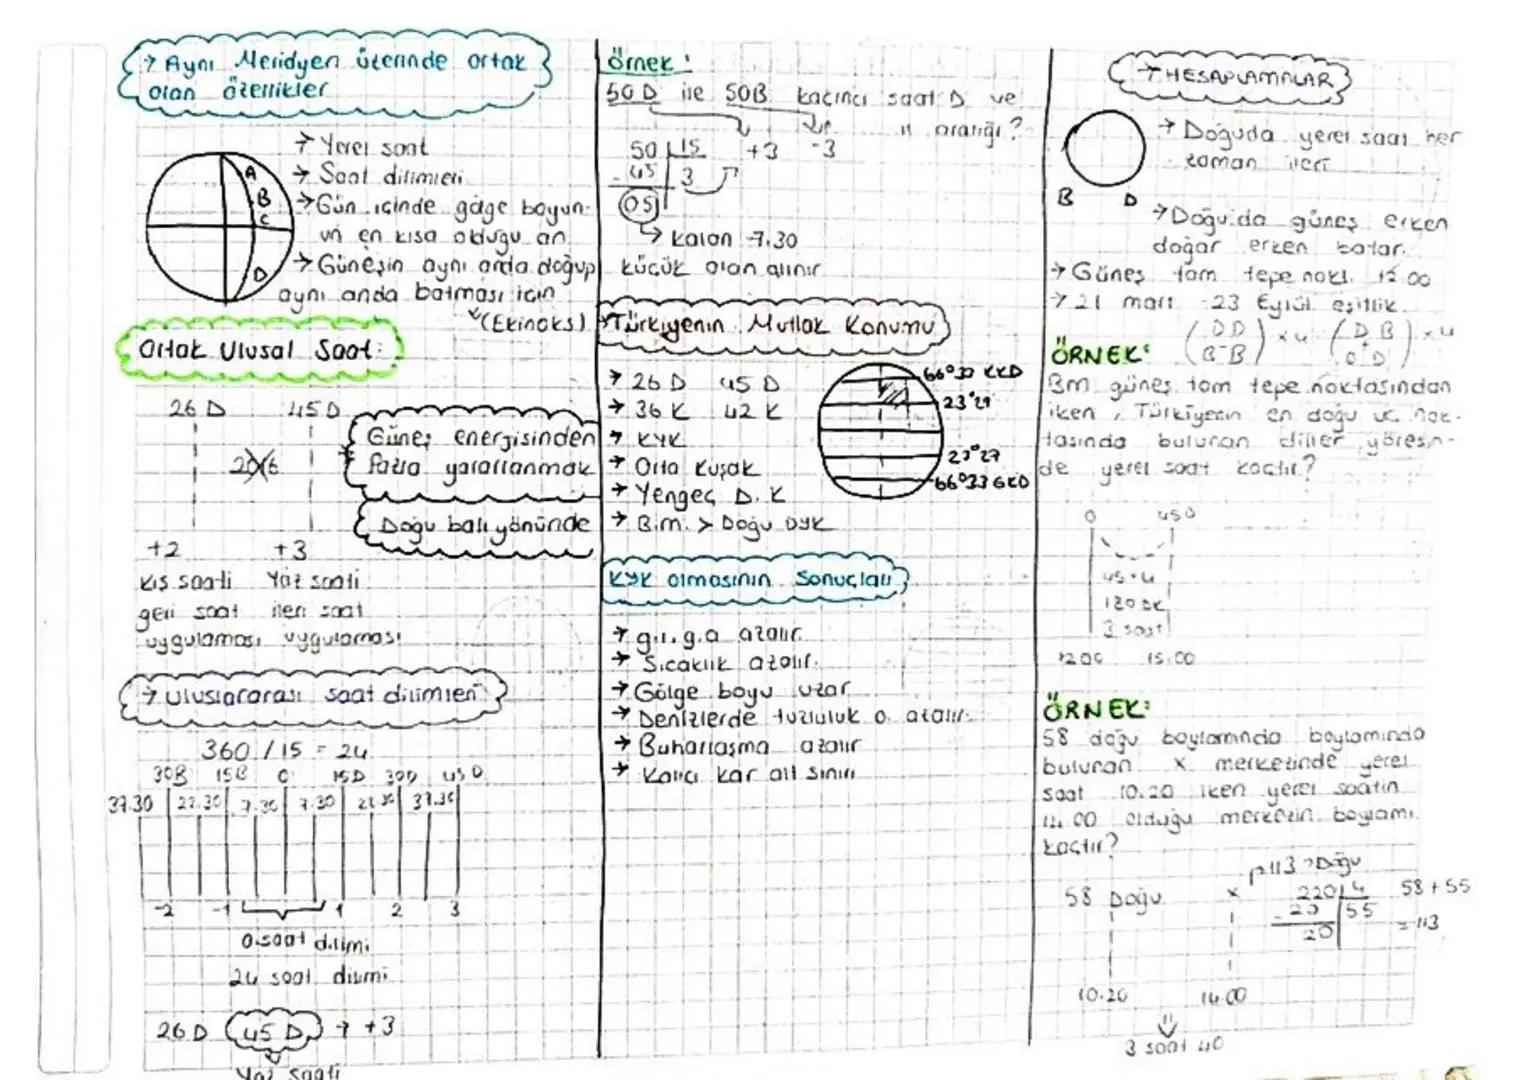 → Aynı Meridyen üzerinde ortak
olan özellikler
→ Yerel saat
→ Saat dilimleri
→ Gün içinde gölge boyunun
en kısa olduğu an
→ Güneşin aynı anda doğup
aynı anda batması için
(Ekinoks)
A
B
C
D
Ortak Ulusal Saat:
26 D 45 D
2016
+2 +3
Kış saati Yaz saati
geri saat ileri saat
uygulaması uygulaması
Güneş enerjisinden
fazla yararlanmak
Doğu batı yönünde
→ Uluslararası saat dilimleri
360 / 15 = 24
30B 15B 0 15D 30D 45D
37.30 22.30 7.30 7.30 22.30 37.30
-2 -1 1 2 3
0.saat dilimi
24 saat dilimi
26 D 45 D → +3
Yaz saati
Örnek:
50 D ile 50B kaçıncı saat D ve
aralığı?
+3 -3
50 15
- 45 3
05
→ kalan 7.30
küçük olan alınır
Türkiyenin Mutlak Konumu
→ 26 D 45 D
→ 36 K 42 K
→ KYK
→ Orta Kuşak
→ Yengeç D. K
→ B.m. > Doğu DYK
66°33 KKD
23°27
23°27
66°33 GKD
KYK olmasının Sonuçları
→ g.ı.g.a azalır
→ Sıcaklık azalır.
→ Gölge boyu uzar
→ Denizlerde tuzluluk o. azalır.
→ Buharlaşma azalır
→ Kalıcı kar alt sınırı
→ HESAPLAMALAR
B D
→ Doğuda yerel saat her
zaman ileri
→ Doğu'da güneş erken
doğar erken batar.
→ Güneş tam tepe nokt. 12.00
→ 21 mart - 23 Eylül eşitlik
(D D B - B) x 4 (D B + D) x 4
ÖRNEK:
Bm güneş tam tepe noktasından
iken, Türkiyenin en doğu uc nok-
tasında bulunan diller yöresin-
de yerel saat kaçtır?
0 45D
45.4
180 DK
3 saat
1200 15.00
ÖRNEK:
58 doğu boylamında boylamında
bulunan x merkezinde yerel
saat 10.20 iken yerel saatin
14.00 olduğu merkezin boylamı
kaçtır?
113 → Doğu
58 Doğu x
220 4 58 + 55
- 20 55 = 113
20
10.20 14.00
3 saat 40